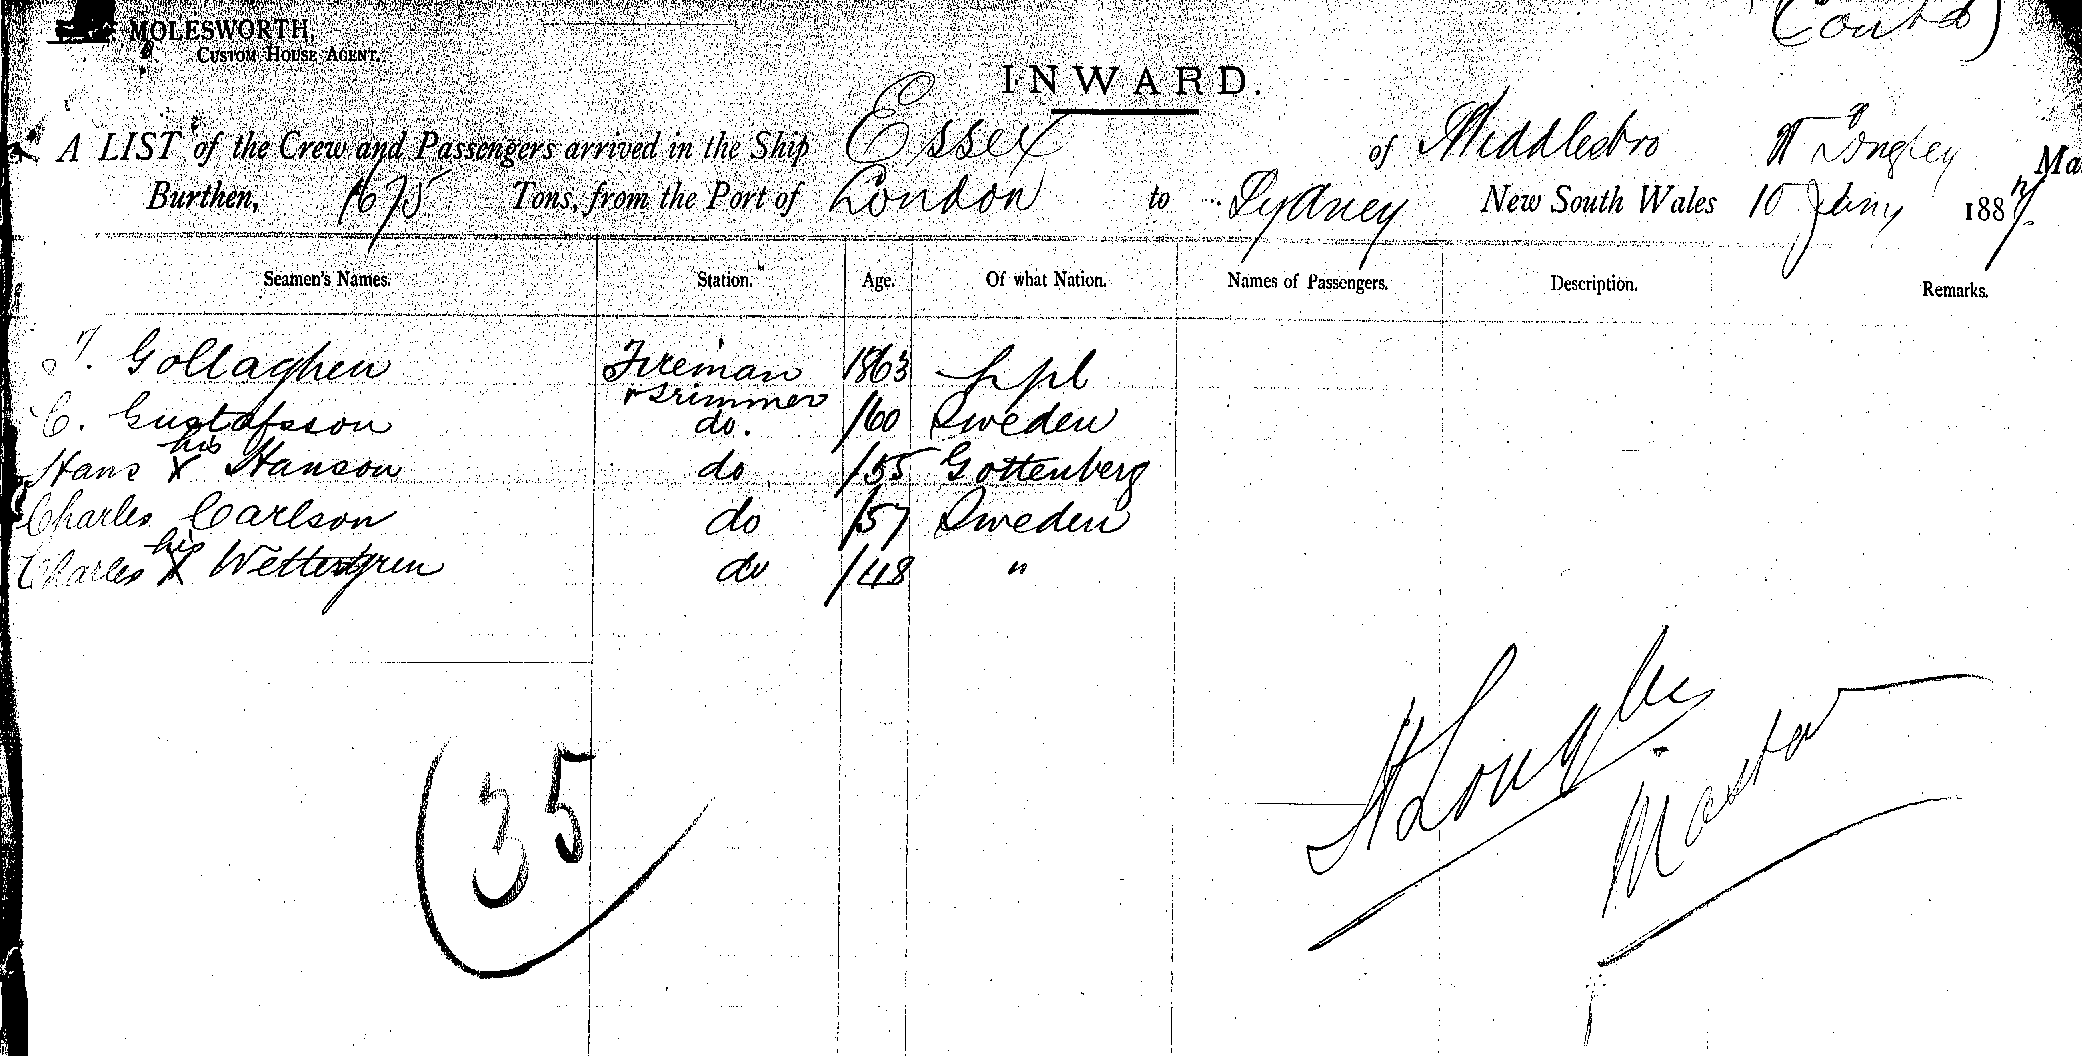 (Contd)
MOLESWORTH,
CUSTOM HOUSE AGENT.
INWARD.
A LIST of the Crew and Passengers arrived in the Ship Essex of Middlesbro W Longley Ma
Burthen, 1675 Tons, from the Port of London to Sydney New South Wales 10 Jany 1887.
Seamen's Names. Station. Age. Of what Nation. Names of Passengers. Description. Remarks.
Gollaghen Fireman 1863 Lpl
& Trimmer
C. Gustafsson do. /60 Sweden
his
Hans X Hanson do /55 Gottenberg
Charles Carlson do /57 Sweden
his
Charles X Wettergren do /48 "
35
Longley
Master